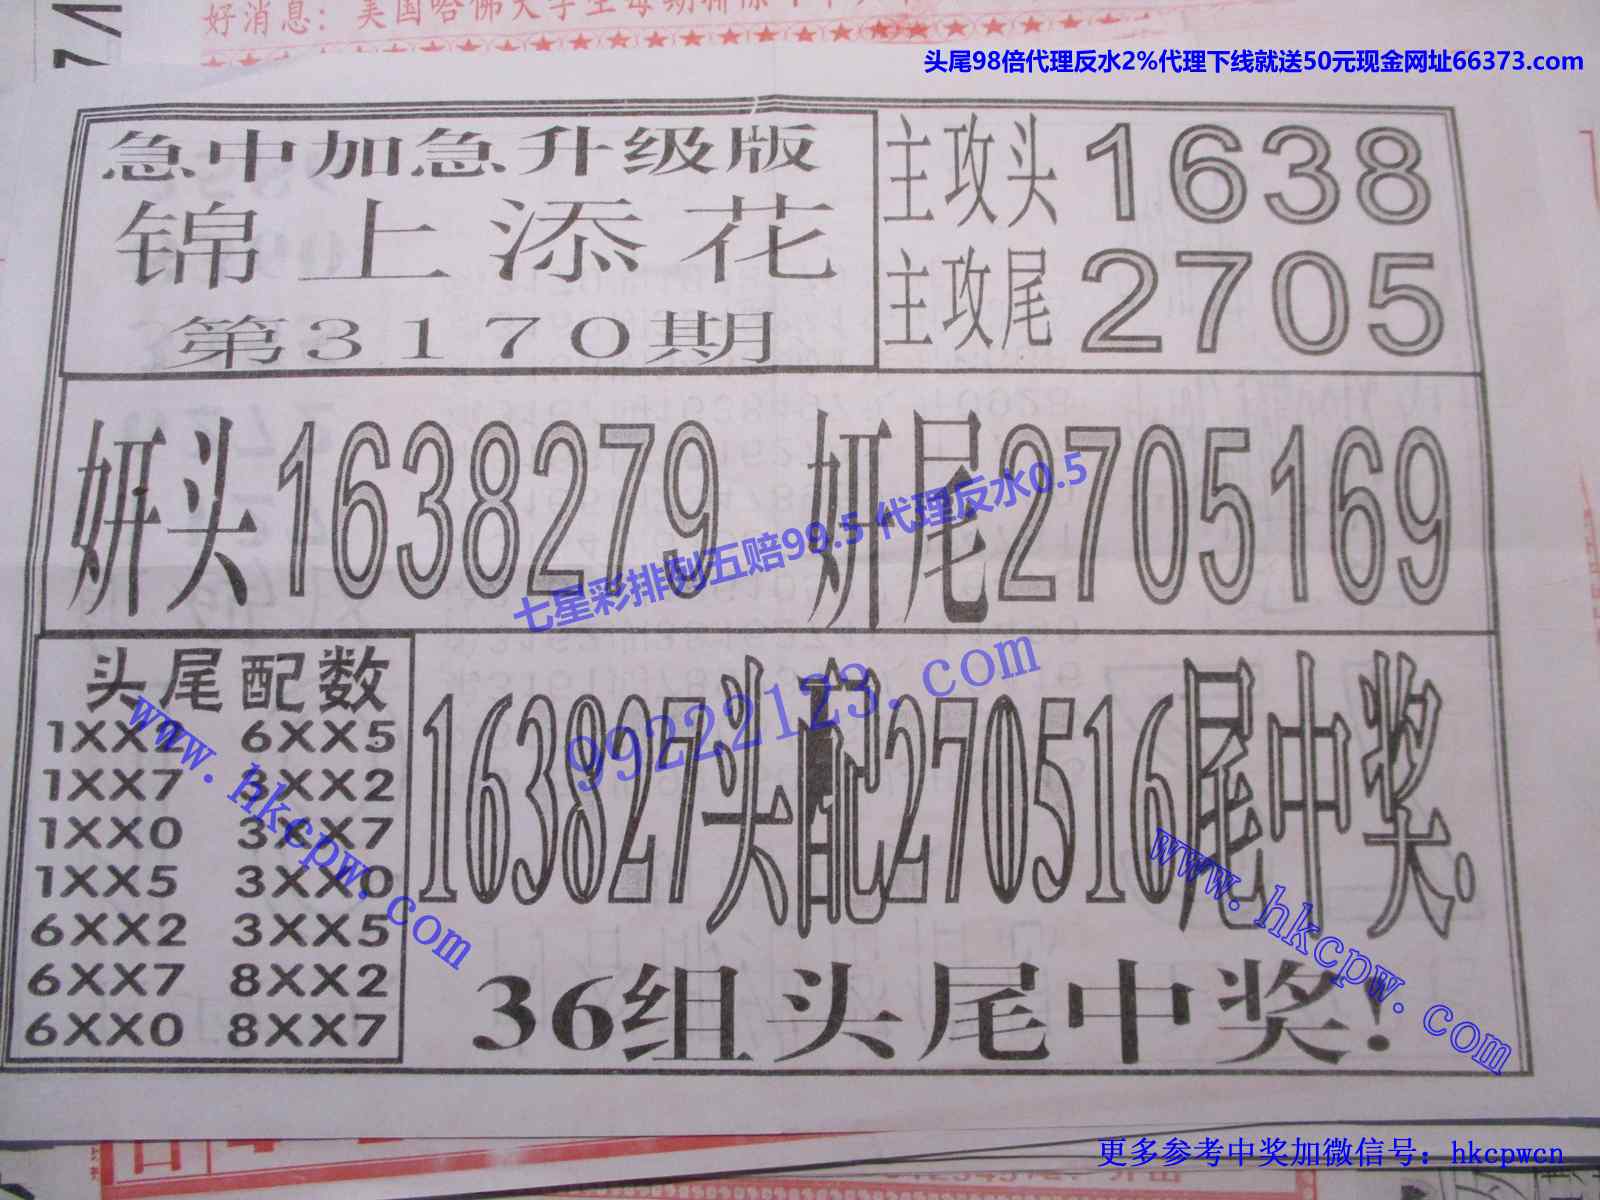 好消息：美国哈佛大学生每期排除
头尾98倍代理反水2%代理下线就送50元现金网址66373.com
急中加急升级版
锦上添花
第3170期
主攻头1638
主攻尾2705
妍头1638279 妍尾2705169
七星彩排列五赔99.5 代理反水0.5
头尾配数
1XX2 6XX5
1XX7 3XX2
1XX0 3XX7
1XX5 3XX0
6XX2 3XX5
6XX7 8XX2
6XX0 8XX7
163827头配270516尾中奖.
36组头尾中奖!
99222123.com
www.hkcpw.com
www.hkcpw.com
更多参考中奖加微信号：hkcpwcn